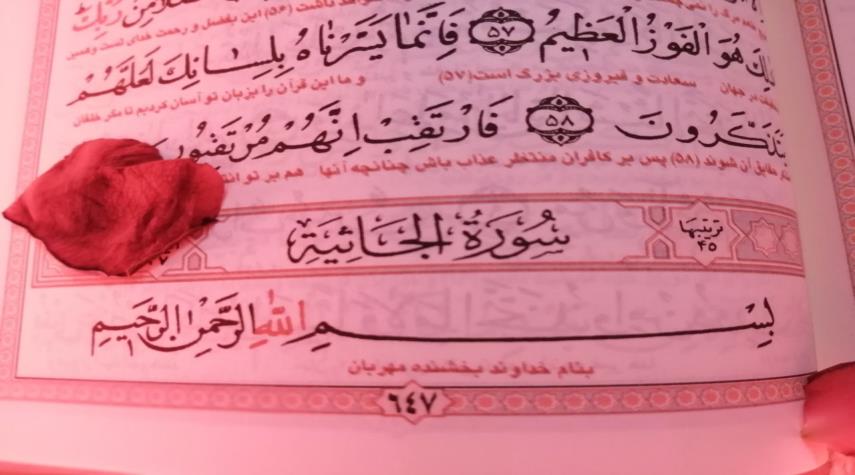 ذَٰلِكَ هُوَ الْفَوْزُ الْعَظِيمُ ﴿٥٧﴾ فَاِنَّمَا يَسَّرْنَاهُ بِلِسَانِكَ لَعَلَّهُمْ
در جهان سعادت و فیروزی بزرگ است(۵۷) و ما این قرآن را بزبان تو آسان کردیم تا مگر خلقان
يَتَذَكَّرُونَ ﴿٥٨﴾ فَارْتَقِبْ اِنَّهُمْ مُرْتَقِبُونَ
متذکر حقایق آن شوند (۵۸) پس بر کافران منتظر عذاب باش چنانچه آنها هم بر تو
سُورَةُ الْجَاثِيَةِ
تَرتيبُها
۴۵
بِسْمِ اللّٰهِ الرَّحْمٰنِ الرَّحِيمِ
بنام خداوند بخشنده مهربان
٦٤٧